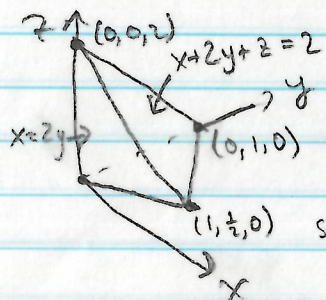 z (0,0,2)
x+2y+z=2
y
x=2y→
(0,1,0)
(1,½,0)
s
x